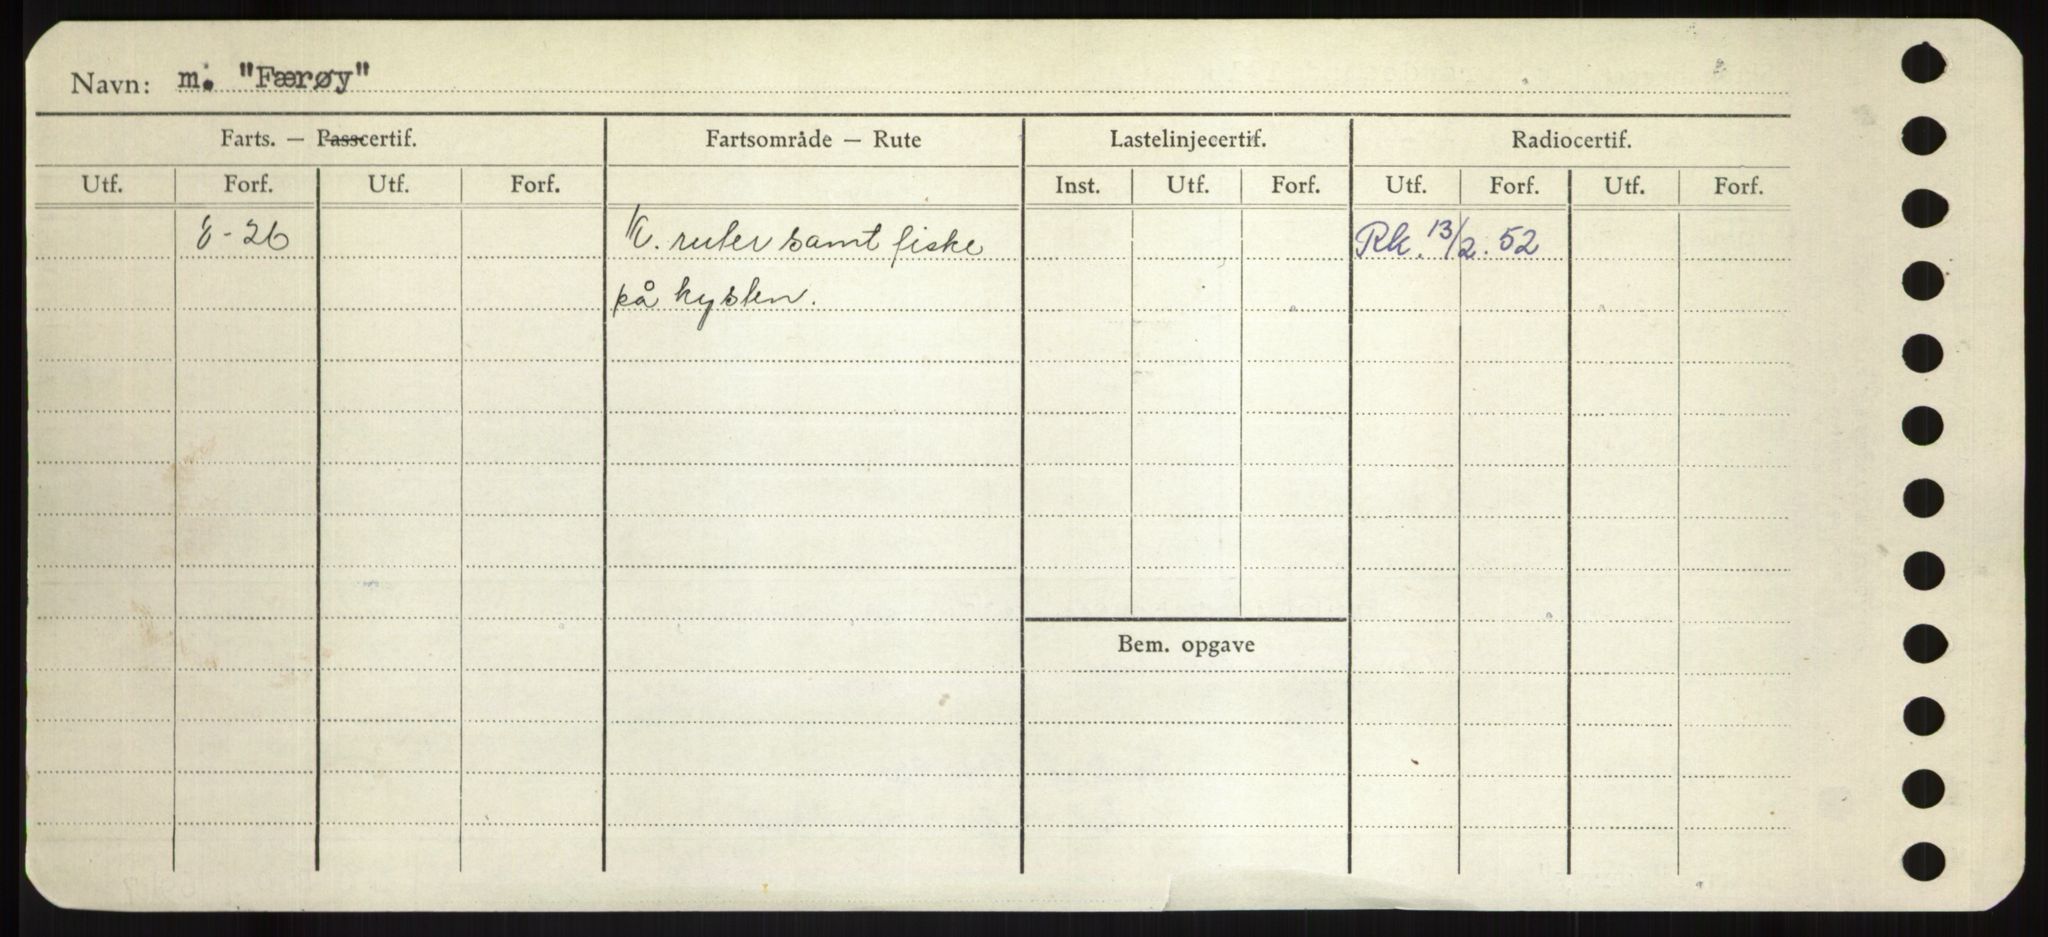 Navn: m. "Færøy"
Farts. — Passcertif. Fartsområde — Rute Lastelinjecertif. Radiocertif.
Utf. Forf. Utf. Forf. Inst. Utf. Forf. Utf. Forf. Utf. Forf.
8-26 K. ruter samt fiske Rk. 13/2. 52
på kysten.
Bem. opgave